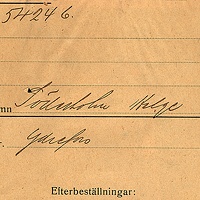 54246.
mn Söderholm Helge
Ydrefors
Efterbeställningar: